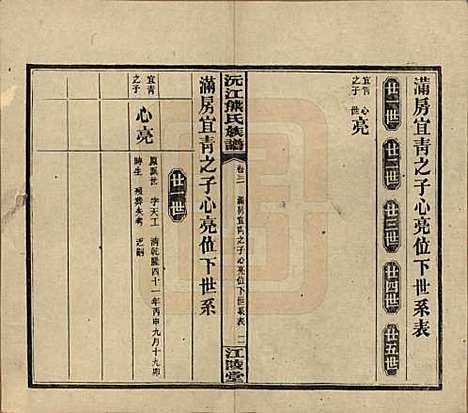 滿房宜青之子心亮位下世系表
廿一世
廿二世
廿三世
廿四世
廿五世
宜青之子
心亮
沅江熊氏族譜
卷三
滿房宜青之子心亮位下世系表
江陵堂
滿房宜青之子心亮位下世系
廿一世
宜青之子
心亮
字天工 清乾隆四十一年丙申九月十九卯時生